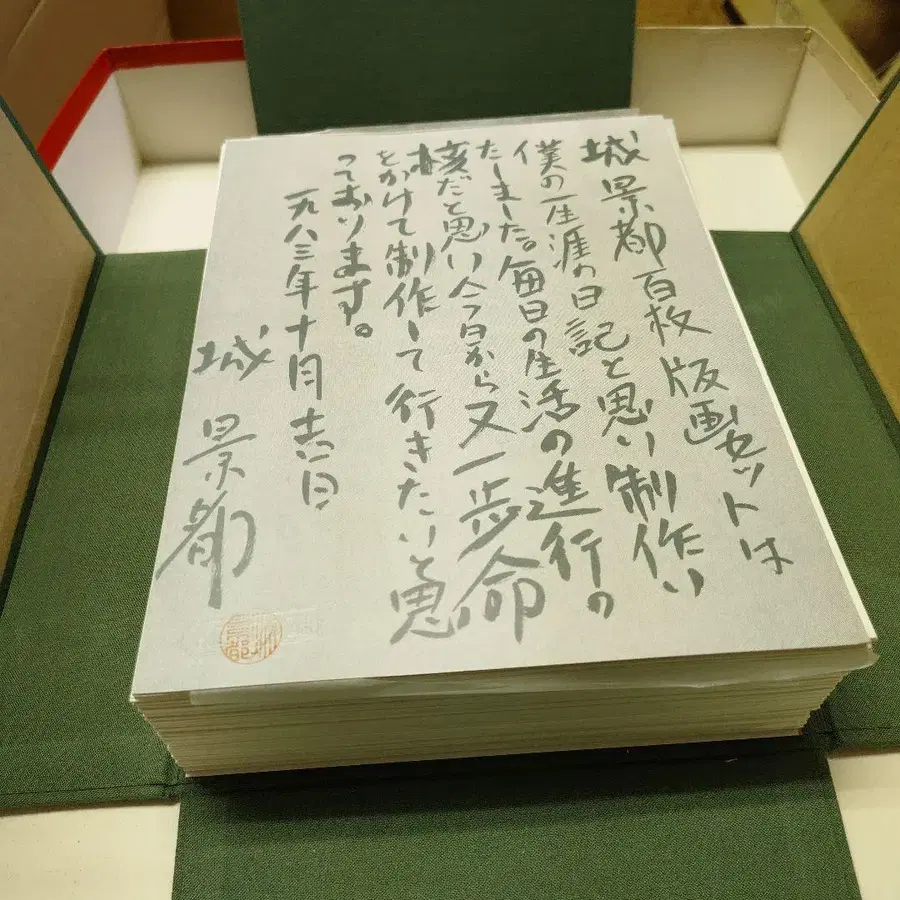 城景都百枚版画セットは
僕の一生涯の日記と思い制作い
たしました。毎日の生活の進行の
核だと思い今日から又一歩命
をかけて制作して行きたいと思
っております。
一九八三年十月吉日
城 景都